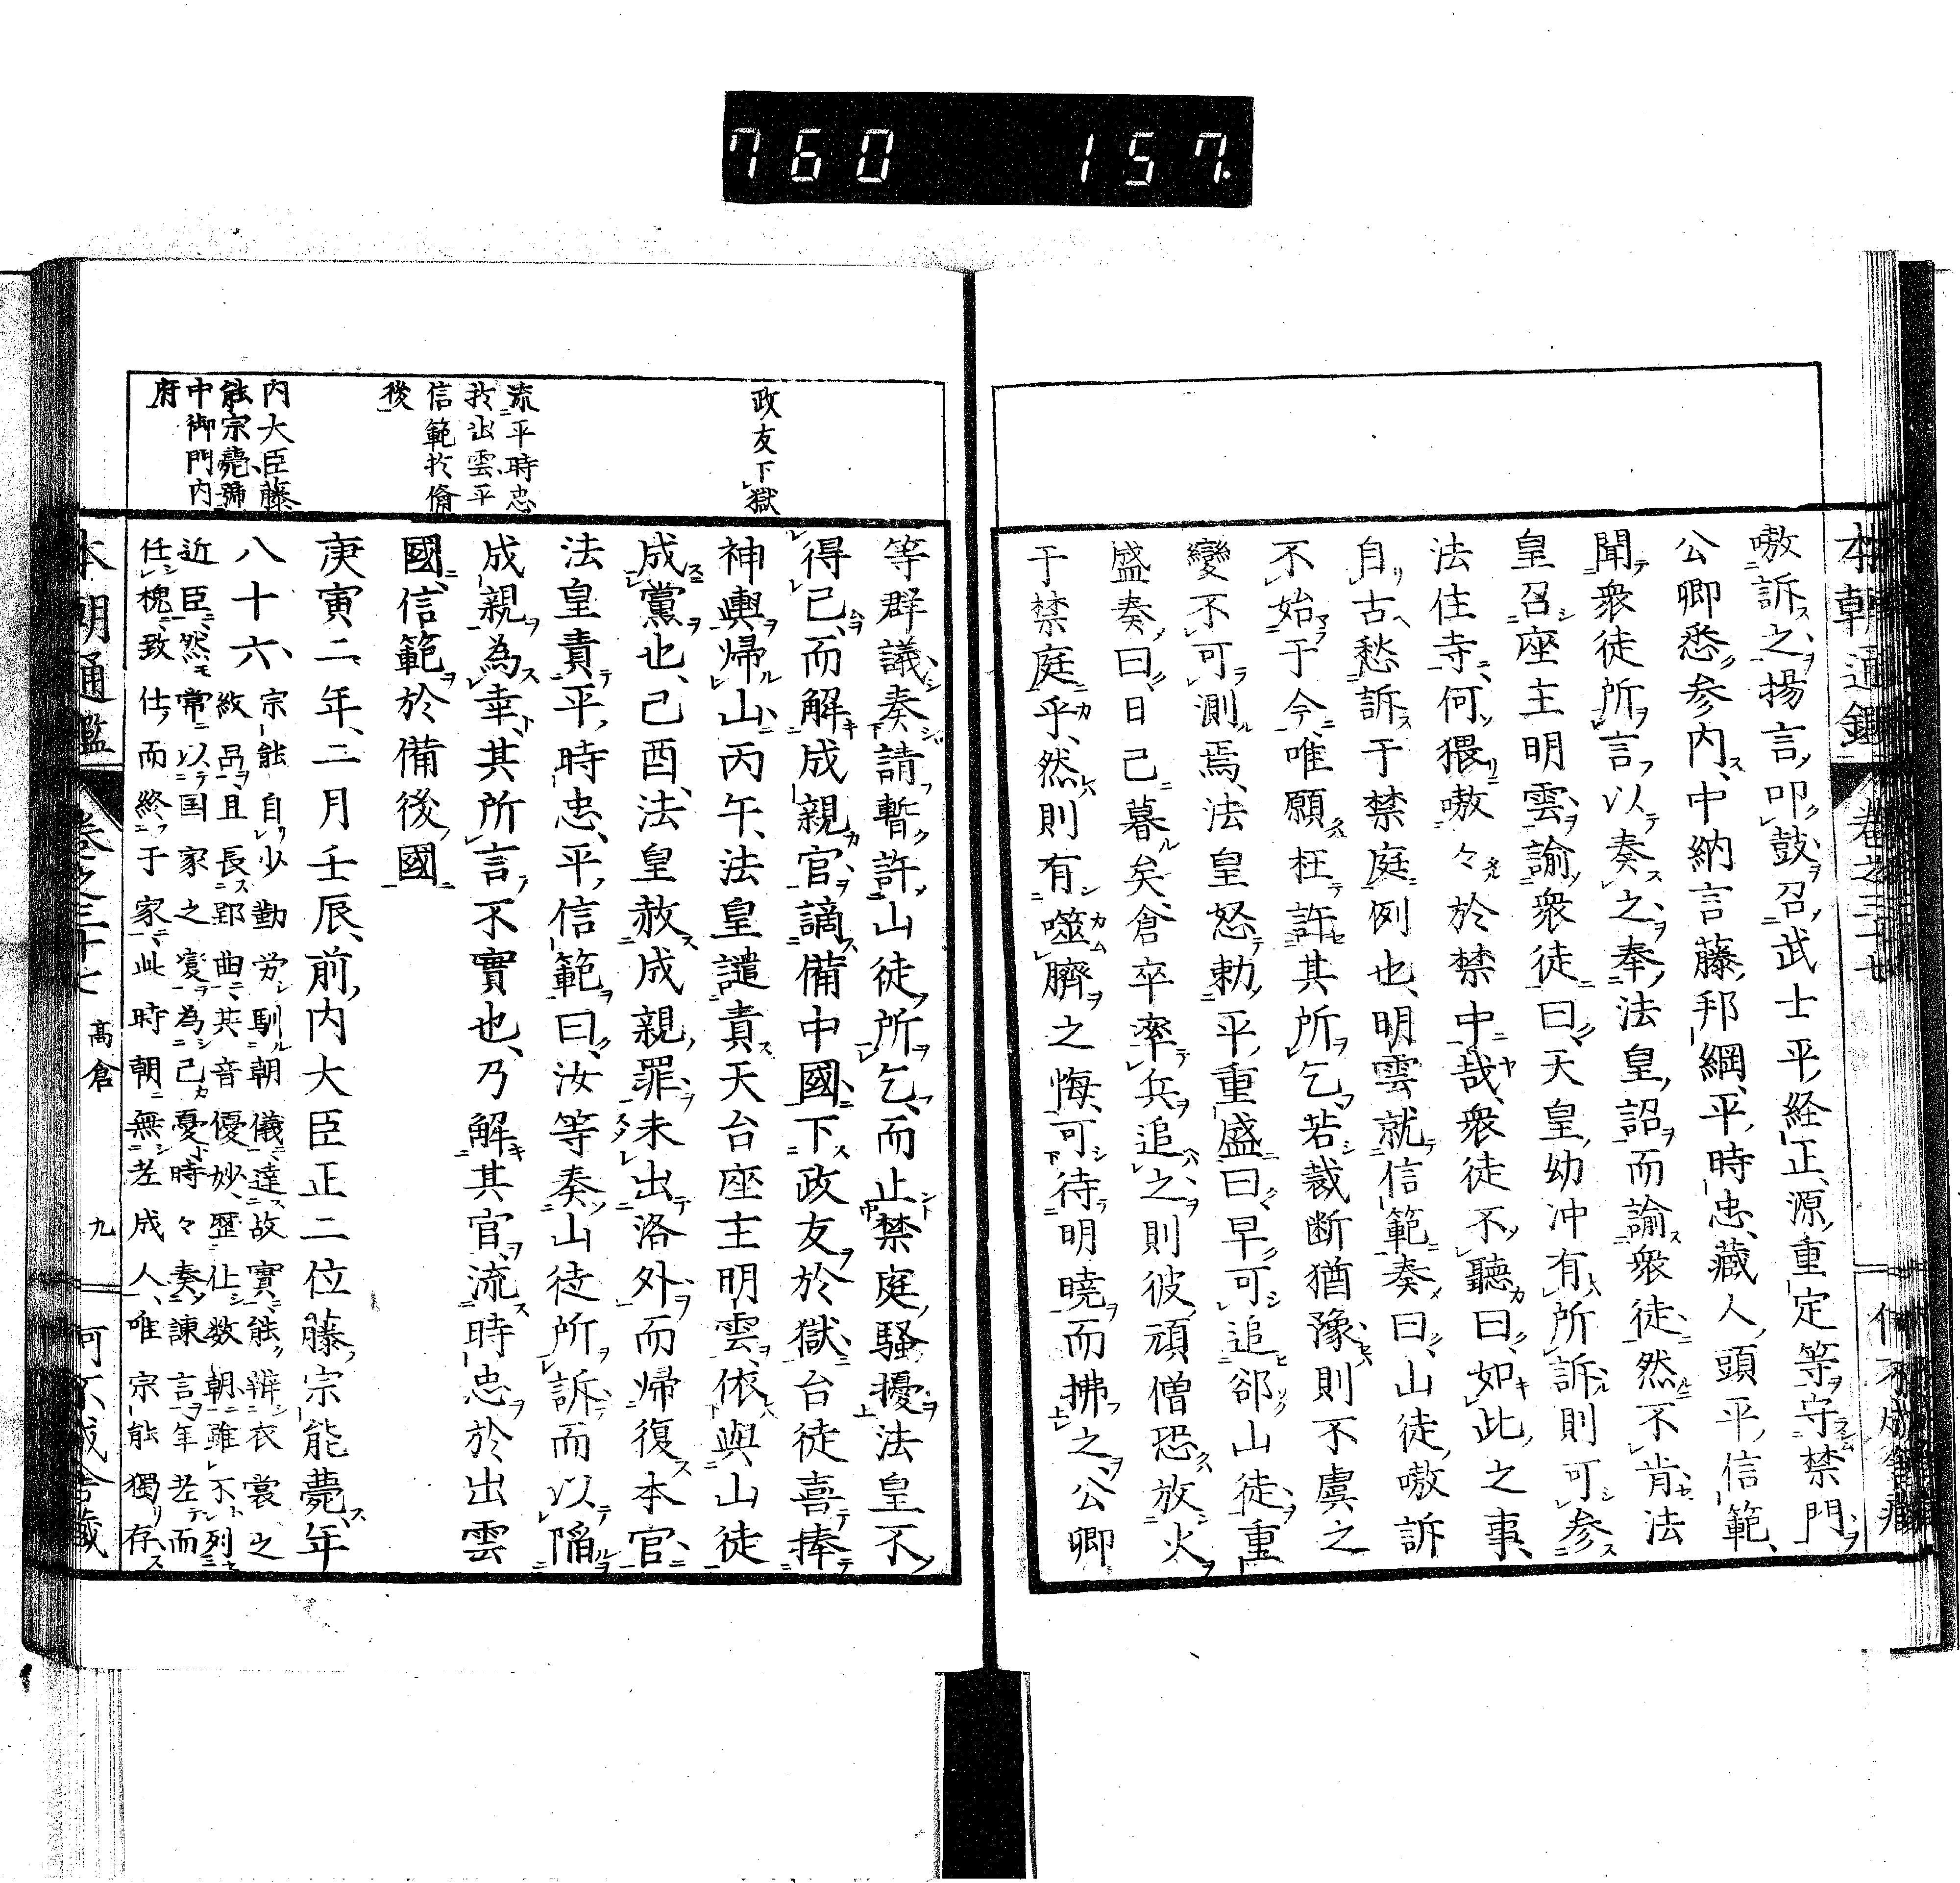 760 157.
本朝通鑑
卷之三十七
嗷訴之揚言叩鼓召武士平経正源重定等守禁門
公卿悉参内中納言藤邦綱平時忠藏人頭平信範
聞衆徒所言以奏之奉法皇詔而諭衆徒然不肯法
皇召座主明雲諭衆徒曰天皇幼冲有所訴則可参
法住寺何猥嗷々於禁中哉衆徒不聽曰如此之事
自古愁訴于禁庭例也明雲就信範奏曰山徒嗷訴
不始于今唯願枉許其所乞若裁断猶豫則不虞之
變不可測焉法皇怒勅平重盛曰早可追郤山徒重
盛奏曰日已暮矣倉卒率兵追之則彼頑僧恐放火
于禁庭乎然則有噬臍之悔可待明曉而拂之公卿
政友下獄
流平時忠
於出雲平
信範於備
後
内大臣藤
能宗薨號
中御門内
府
等群議奏請暫許山徒所乞而止禁庭騷擾法皇不
得已而解成親官謫備中國下政友於獄台徒喜捧
神輿歸山丙午法皇譴責天台座主明雲依與山徒
成黨也己酉法皇赦成親罪未出洛外而歸復本官
法皇責平時忠平信範曰汝等奏山徒所訴而以陷
成親為幸其所言不實也乃解其官流時忠於出雲
國信範於備後國
庚寅二年二月壬辰前内大臣正二位藤宗能薨年
八十六
宗能自少勤労馴朝儀達故實能辯衣裳之
紋呂且長郢曲其音優妙歷仕数朝雖不列
近臣然常以国家之憂為己憂時々奏諫言年老而
任槐致仕而終于家此時朝無老成人唯宗能獨存
本朝通鑑
卷之三十七 高倉 九